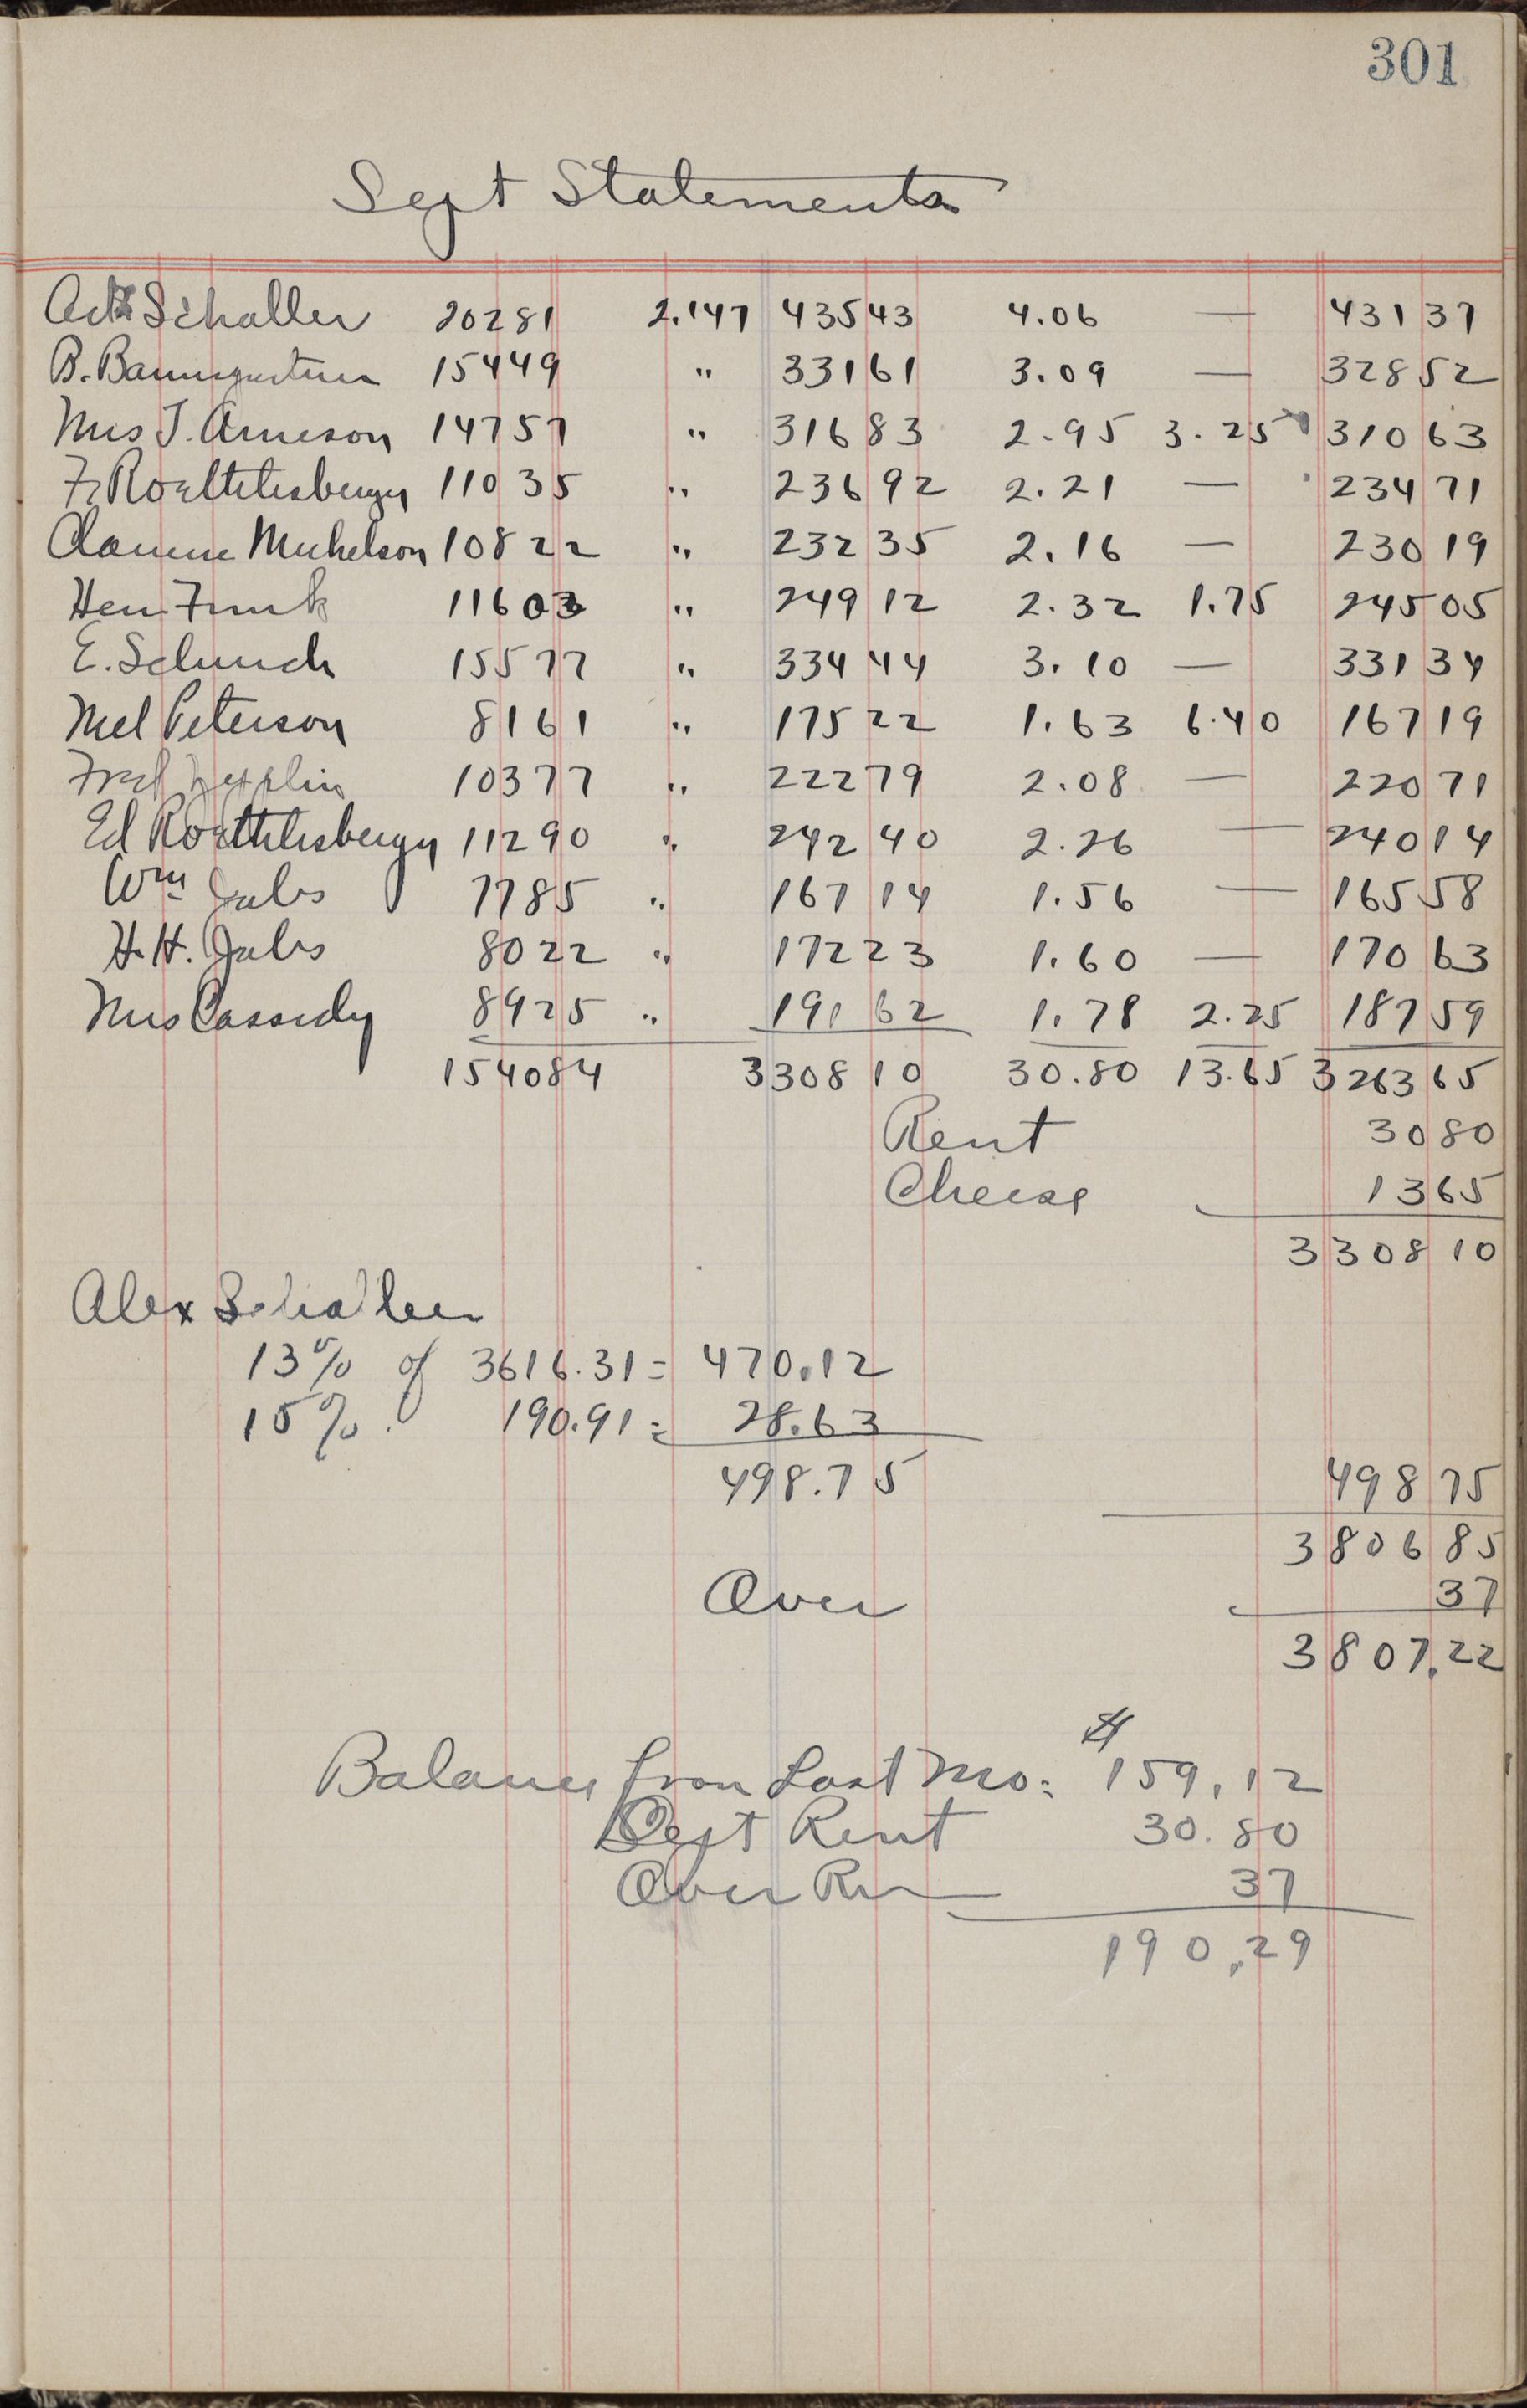 301
Sept Statements
Schaller 20281 2.147 435 43 4.06 — 431 37
B. Baumgartner 15449 " 331 61 3.09 — 328 52
Mrs J. Arneson 14757 " 316 83 2.95 3.25 310 63
F. Roethlisberger 11035 " 236 92 2.21 — 234 71
Clarence Michelson 10822 " 232 35 2.16 — 230 19
Hen Funk 11603 " 249 12 2.32 1.75 245 05
E. Schuch 15577 " 334 44 3.10 — 331 34
Mel Peterson 8161 " 175 22 1.63 6.40 167 19
Fred Zepplin 10377 " 222 79 2.08 — 220 71
Ed Roethlisberger 11290 " 242 40 2.26 — 240 14
Wm Jabs 7785 " 167 14 1.56 — 165 58
H.H. Jabs 8022 " 172 23 1.60 — 170 63
Mrs Cassidy 8925 " 191 62 1.78 2.25 187 59
154084 3308 10 30.80 13.65 3263 65
Rent 30 80
Cheese 13 65
3308 10
Alex Schaller
13% of 3616.31 = 470.12
15% 190.91 = 28.63
498.75 498 75
3806 85
Over 37
3807.22
$
Balance from Last Mo: 159.12
Sept Rent 30.80
Over Run 37
190.29